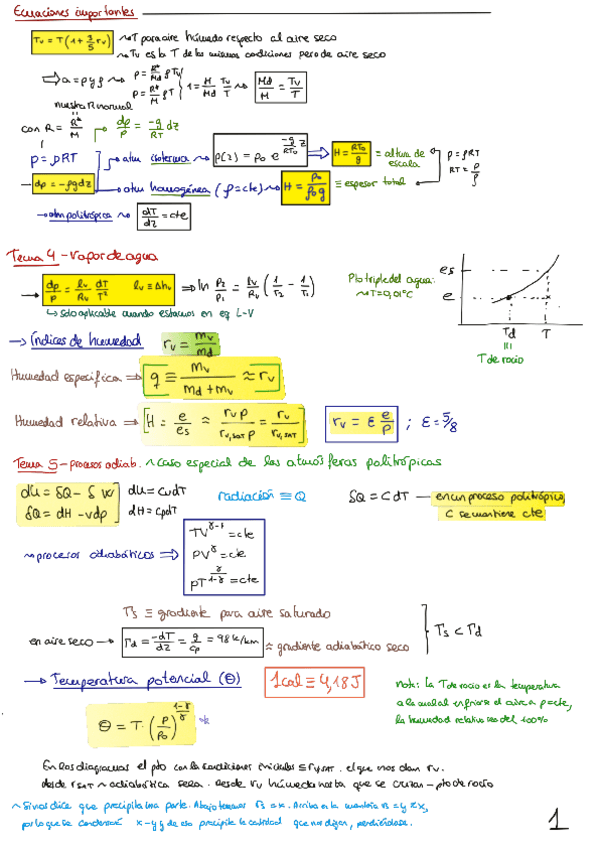 Ecuaciones importantes
Tv = T(1+3/5 rv) ~> T para aire húmedo respecto al aire seco
~> Tv es la T de las mismas condiciones pero de aire seco
a = p y ρ ~> p = R*/Md ρTv
p = R*/M ρT } 1 = M/Md Tv/T ~> Md/M = Tv/T
nuestra R normal
con R = R*/M
dp/p = -g/RT dz
p = ρRT ~> atm isoterma ~> p(z) = p0 e^(-g/RT0 z) => H = RT0/g ≡ altura de escala
p = ρRT
RT = p/ρ
dp = -ρgdz ~> atm homogénea (ρ=cte) ~> H = p0/ρ0g ≡ espesor total
~> atm politrópica ~> dT/dz = cte
Tema 4 - Vapor de agua
dp/p = lv/Rv dT/T² lv ≡ Δhv => ln p2/p1 = lv/Rv (1/T2 - 1/T1)
↳ solo aplicable cuando estamos en eq L-V
Pto triple del agua:
~> T=0,01ºC
es
e
Td T
Tde rocío
-> Índices de humedad rv = mv/md
Humedad específica => [q ≡ mv/md+mv ≈ rv]
Humedad relativa => [H = e/es ≈ rv p/rv,sat p = rv/rv,sat] rv = ε e/p ; ε = 5/8
Tema 5 - procesos adiab. ~ caso especial de las atmósferas politrópicas
dU = δQ - δW dU = CvdT
δQ = dH - vdp dH = CpdT
radiación ≡ Q
δQ = C dT — en un proceso politrópico
C se mantiene cte
~> procesos adiabáticos =>
TV^γ-1 = cte
PV^γ = cte
PT^γ/1-γ = cte
Γs ≡ gradiente para aire saturado
en aire seco -> Γd = -dT/dz = g/cp = 9,8 k/km ≈ gradiente adiabático seco
} Γs < Γd
-> Temperatura potencial (Θ)
1 cal ≡ 4,18 J
Θ = T · (p/p0)^1-γ/γ
Nota: La T de rocío es la temperatura
a la cual al enfriarse el aire a p=cte,
la humedad relativa es del 100%
En los diagramas el pto con las condiciones iniciales
desde rsat ~ adiabática seca. desde rv húmeda hasta que se cruzan - pto de rocío
~ Si nos dice que precipita una parte. Abajo tenemos
por lo que se condensará x-y y de eso precipita la cantidad que nos digan, perdiéndose.
1